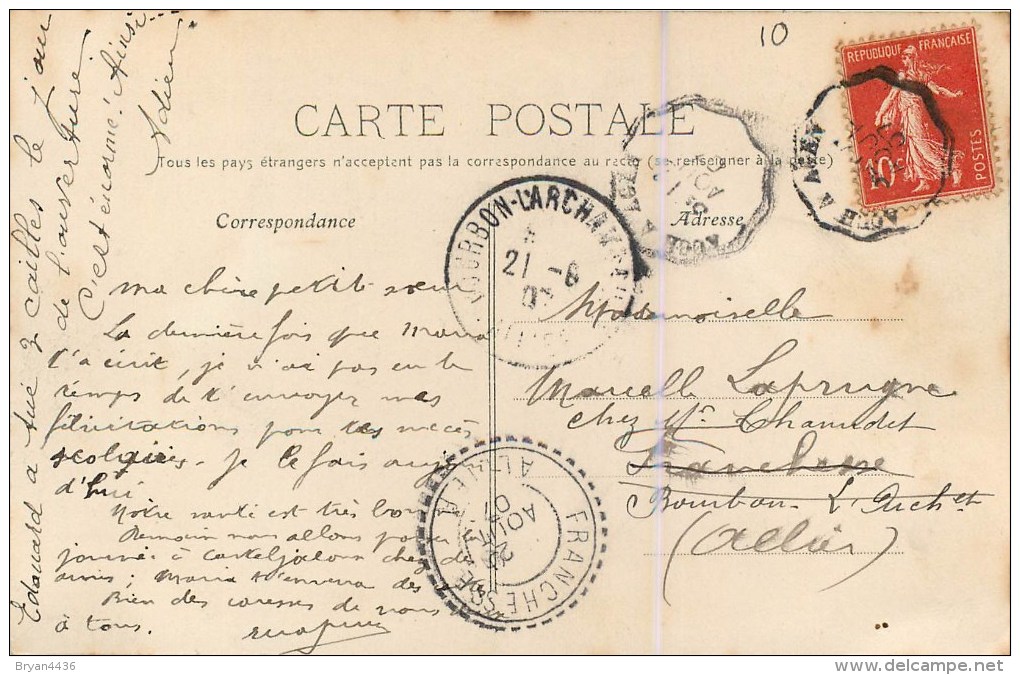 10
REPUBLIQUE FRANÇAISE
10c
POSTES
CARTE POSTALE
Tous les pays étrangers n'acceptent pas la correspondance au recto (se renseigner à la poste)
Correspondance
Adresse
AUCH A AGEN
AUCH A AGEN
AOUT
BOURBON-L'ARCHAMBAULT
21 -8
ALLIER
FRANCHESSE
ALLIER
20
AOUT
07
Ma chère petite sœur
La dernière fois que Maria
t'a écrit, je n'ai pas eu le
temps de t'envoyer mes
félicitations pour tes succès
scolaires. Je le fais aujour
d'hui
Notre santé est très bonne
Demain nous allons passer
journée à Casteljaloux chez des
amis; Maria t'enverra des
Bien des caresses de nous
à tous.
Edouard a tué 3 cailles le jour
de l'ouverture
C'est énorme! Ainsi...
Adieu
Mademoiselle
Marcelle Laprugne
chez Mr Chamdet
Franchesse
Bourbon L'Archt
(Allier)
Bryan4436
delcampe.net